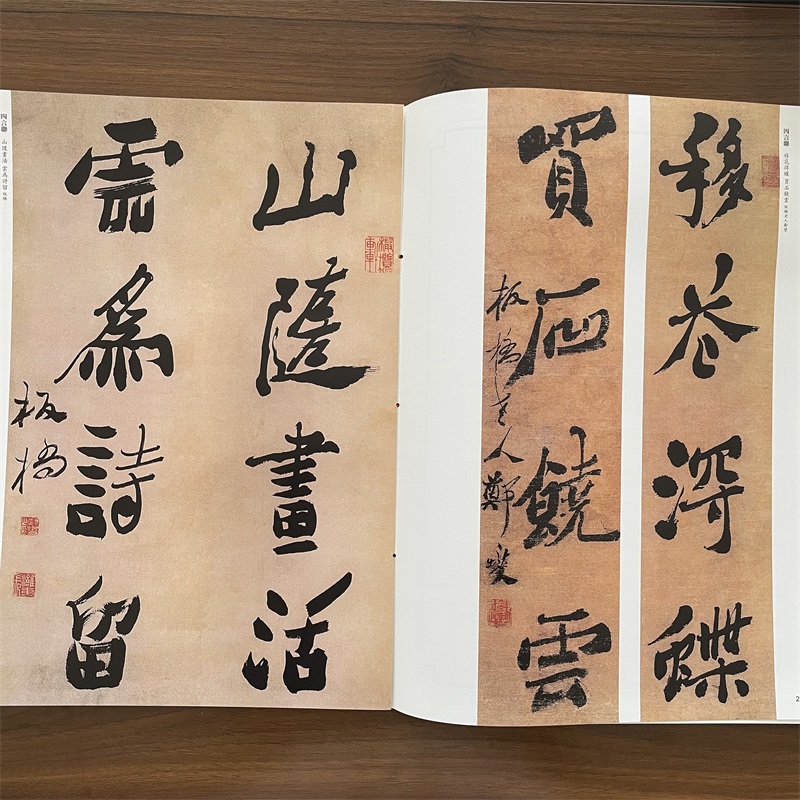 四言聯 移花得蝶 買石饒雲 板橋老人鄭燮
移花淂蝶
買石饒雲
板橋老人鄭燮
山隨畫活
雲爲詩留
板橋
四言聯 山隨畫活 雲爲詩留 板橋